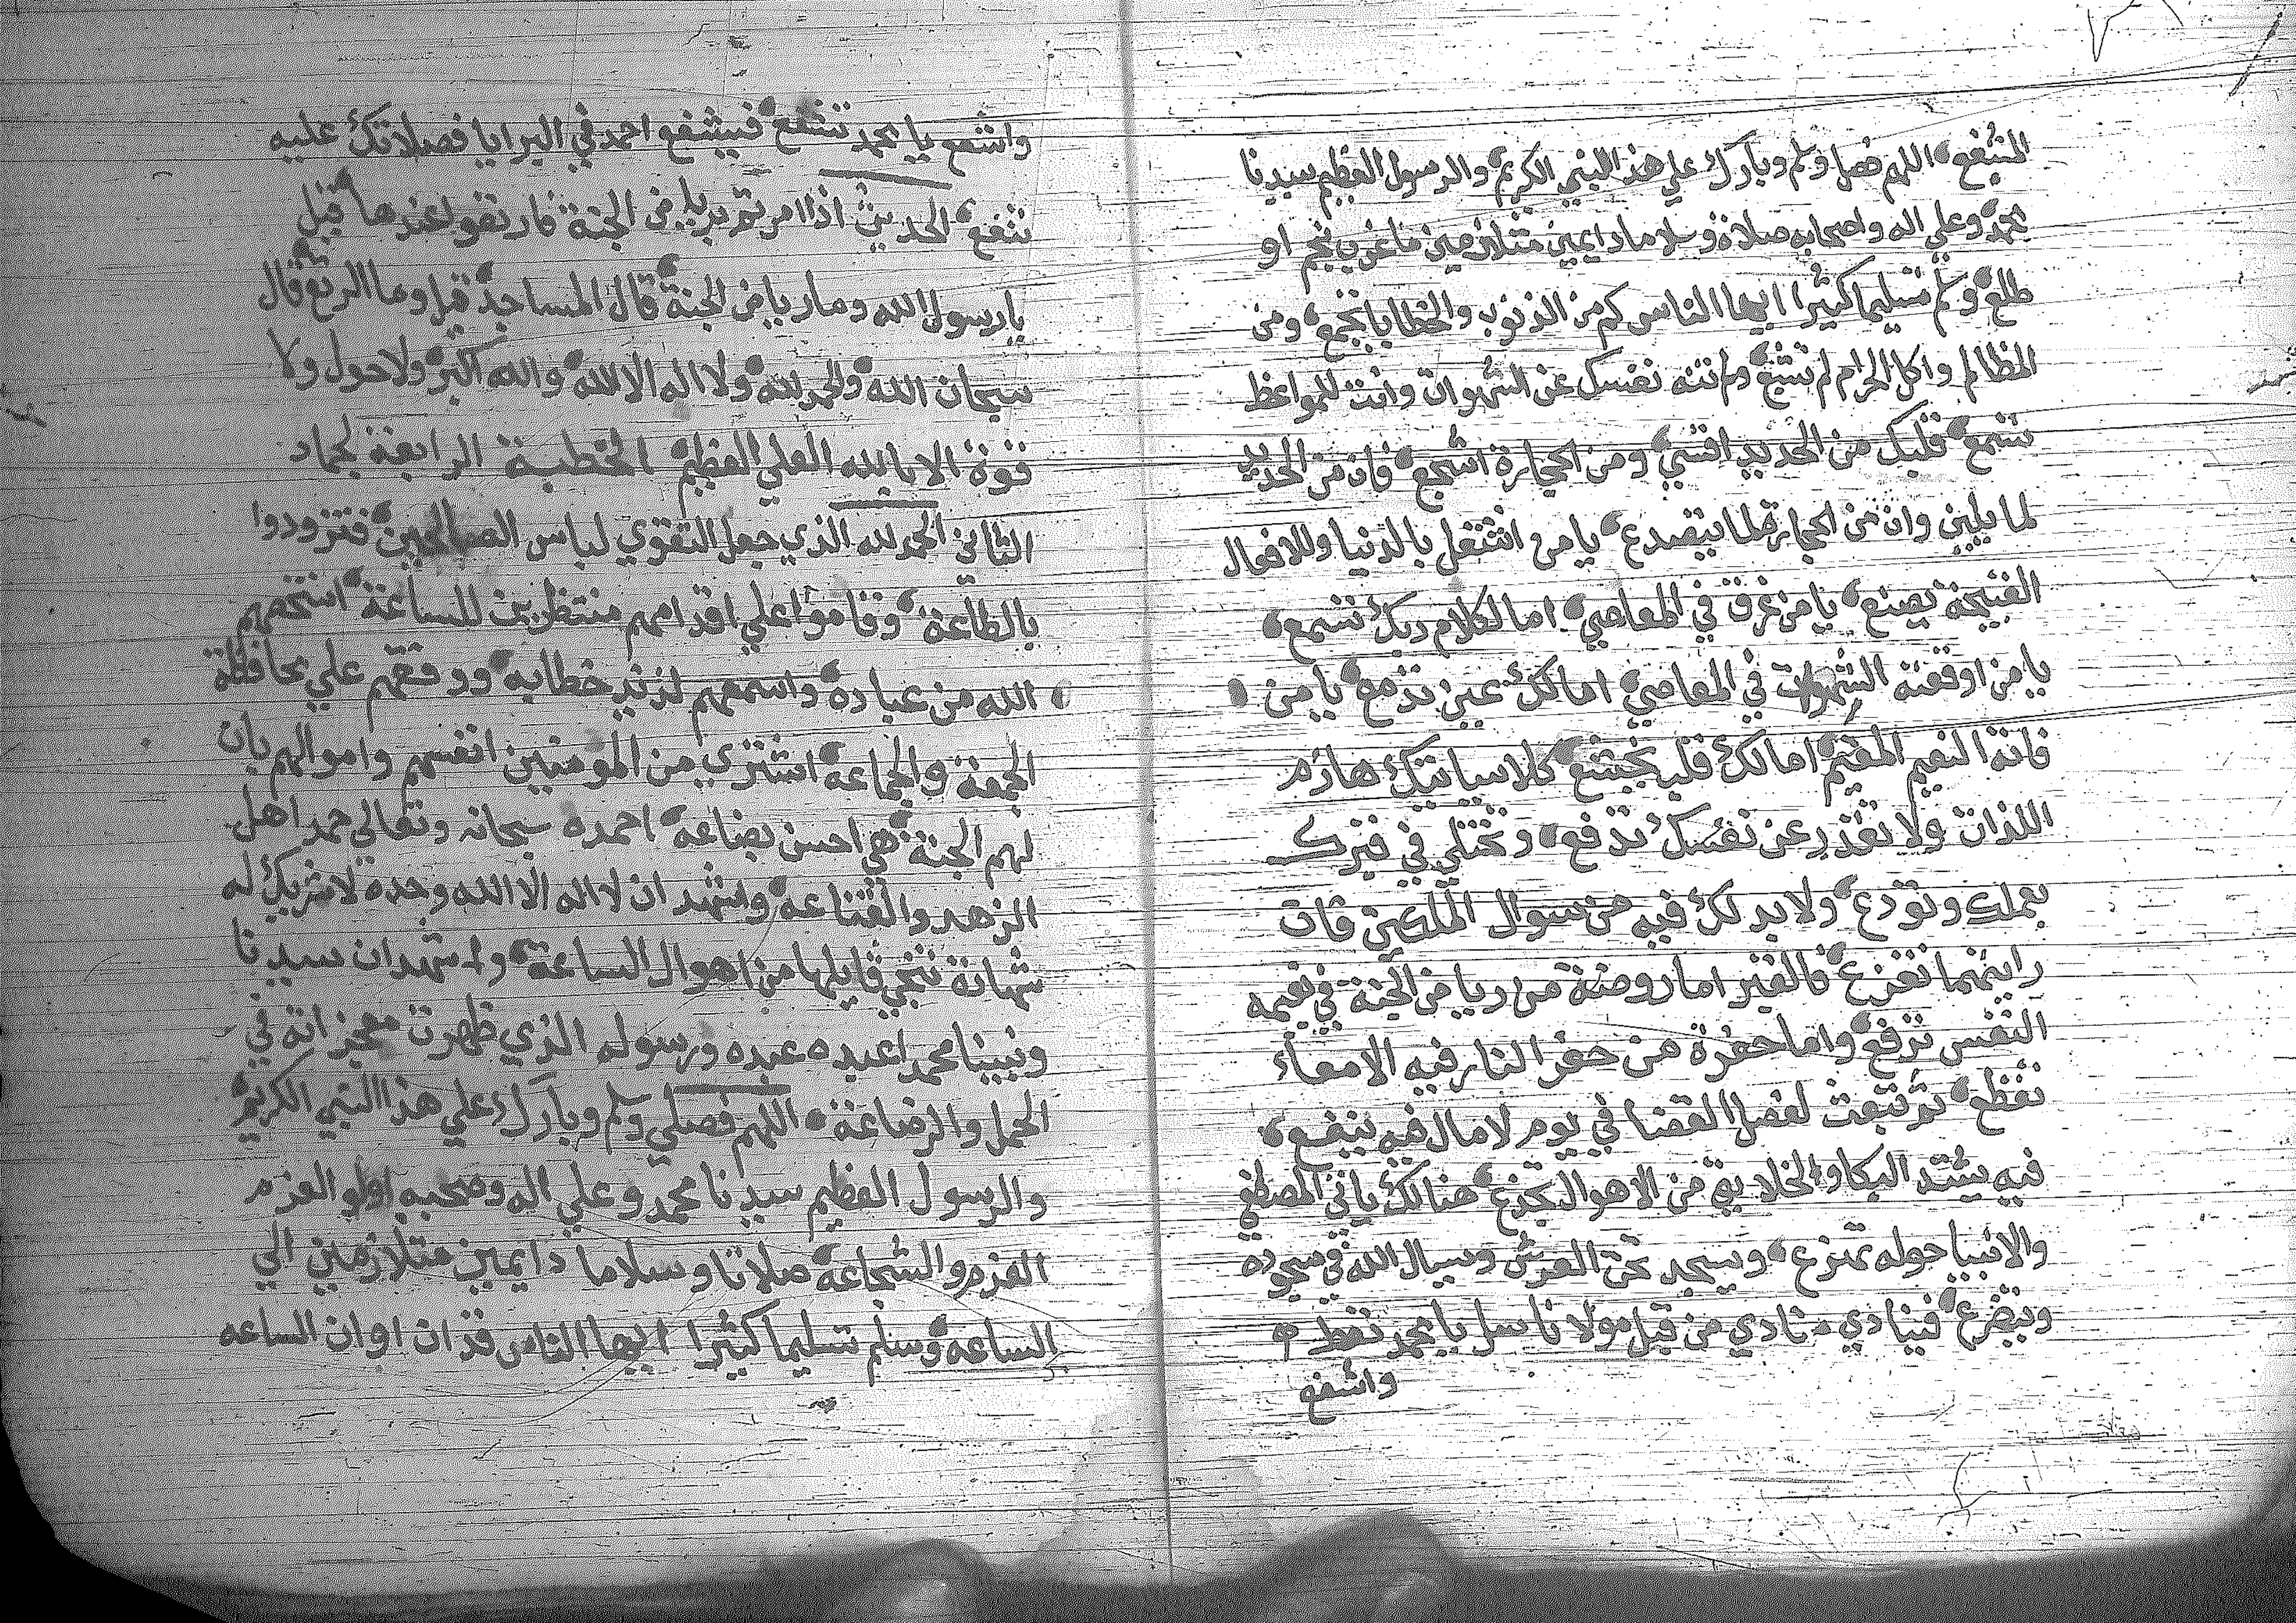 المشفع اللهم فصل وسلم وبارك علي هذا النبي الكريم والرسول العظيم سيدنا
محمد وعلي اله واصحابه صلاة وسلاما دايمين متلازمين ما غرب نجم او
طلع وسلم تسليما كثيرا ايها الناس كم من الذنوب والخطايا تجمع ومن
المظالم واكل الحرام لم تشبع ولم تنته نفسك عن الشهوات وانت للمواعظ
تسمع قلبك من الحديد اقسي ومن الحجارة اشجع فان من الحديد
لما يلين وان من الحجارة لما يتصدع يا من اشتغل بالدنيا وللافعال
القبيحة يصنع يا من غرق في المعاصي اما لكلام ربك تسمع
يا من اوقعته الشهوات في المعاصي اما لك عين تدمع يا من
فاته النعيم المقيم اما لك قلب يخشع كلا سياتيك هازم
اللذات ولا تقدر عن نفسك تدفع وتختلي في قبرك
بعملك وتودع ولا بد لك فيه من سوال الملكين فان
رايتهما تفزع فالقبر اما روضة من رياض الجنة في نعيمه
النفس ترفع واما حفرة من حفر النار فيه الامعاء
تقطع ثم تبعث لفصل القضا في يوم لا مال فيه ينفع
فيه يشتد البكا والخلايق من الاهوال تجزع هنالك ياتي المصطفي
والانبيا حوله تهرع ويسجد تحت العرش ويسال الله في سجوده
ويتضرع فينادي منادي من قبل مولانا سل يا محمد تعط
واشفع
واشفع يا محمد تشفع فيشفع احمد في البرايا فصلاتك عليه
تنفع الحديث اذا مرتم برياض الجنة فارتعوا عندها قيل
يا رسول الله وما رياض الجنة قال المساجد قيل وما الرتع قال
سبحان الله والحمد لله ولا اله الا الله والله اكبر ولا حول ولا
قوة الا بالله العلي العظيم الخطبة الرابعة لجماد
الثاني الحمد لله الذي جعل التقوي لباس الصالحين فتزودوا
بالطاعة وقاموا علي اقدامهم منتظرين للساعة انتخبهم
الله من عباده واسمعهم لذيذ خطابه ووفقهم علي محافظة
الجمعة والجماعه اشتري من المومنين انفسهم واموالهم بان
لهم الجنة هي احسن بضاعه احمده سبحانه وتعالى حمد اهل
الزهد والقناعه واشهد ان لا اله الا الله وحده لا شريك له
شهادة تنجي قايلها من اهوال الساعة واشهد ان سيدنا
ونبينا محمدا عبده عبده ورسوله الذي ظهرت معجزاته في
الحمل والرضاعة اللهم فصلي وسلم وبارك علي هذا النبي الكريم
والرسول العظيم سيدنا محمد وعلي اله وصحبه اولو العزم
العزم والشجاعه صلاتا وسلاما دايمين متلازمين الي
الساعه وسلم تسليما كثيرا ايها الناس قد ان اوان الساعه